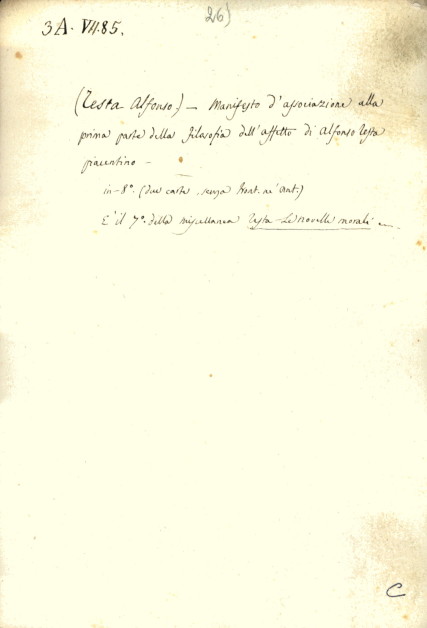 26)
3A. VII.85.
(Testa Alfonso) — Manifesto d'associazione alla
prima parte della filosofia dell'affetto di Alfonso Testa
piacentino —
in-8°. (due carte, senza front. nè ant.)
È il 7°. della miscellanea Testa - Le novelle morali
C